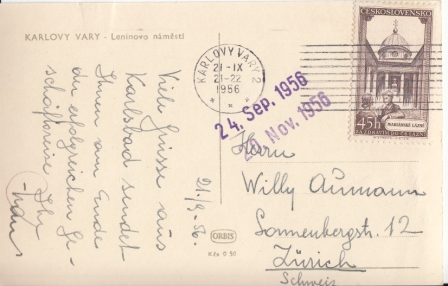 KARLOVY VARY - Leninovo náměstí
KARLOVY VARY 2
21-IX
21-22
1956
ČESKOSLOVENSKO
MARIÁNSKÉ LÁZNĚ
45h
24. Sep. 1956
Nov. 1956
Viele Grüsse aus
Karlsbad sendet
Ihnen am Ende
der erfolgreichen Ge-
schäftsreise Ihr
21/9.56.
Herrn
Willy Aumann
Sonnenbergstr. 12
Zürich
Schweiz
ORBIS